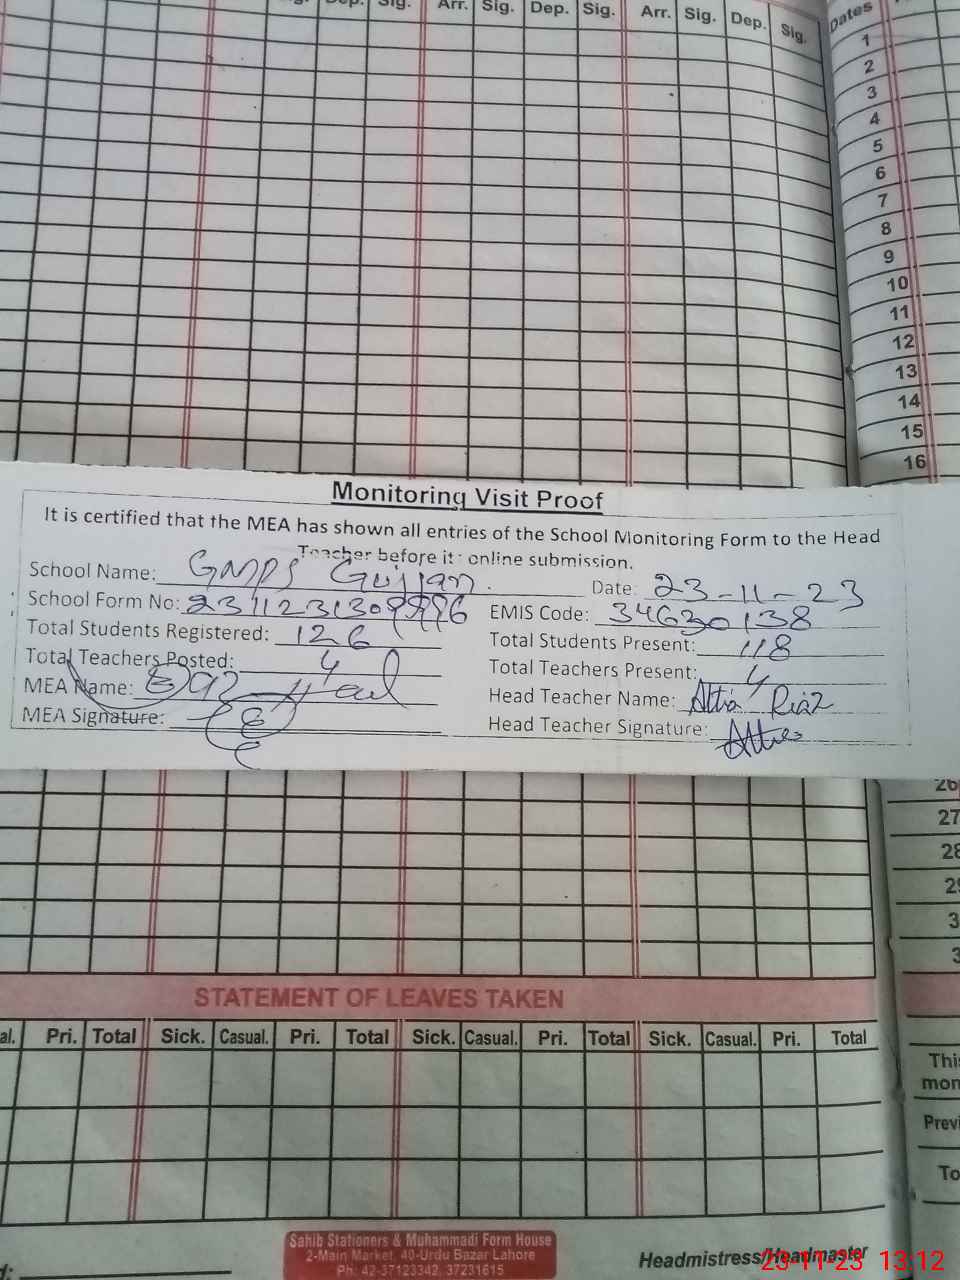 Dep. Sig. Arr. Sig. Dep. Sig. Arr. Sig. Dep. Sig. Dates
1
2
3
4
5
6
7
8
9
10
11
12
13
14
15
16
Monitoring Visit Proof
It is certified that the MEA has shown all entries of the School Monitoring Form to the Head
Teacher before its online submission.
School Name: GMPS Gujjran. Date: 23-11-23
School Form No: EMIS Code: 34630138
Total Students Registered: 126 Total Students Present: 118
Total Teachers Posted: 4 Total Teachers Present: 4
MEA Name: Head Teacher Name: Attia Riaz
MEA Signature: Head Teacher Signature: Attia
26
27
28
29
3
3
STATEMENT OF LEAVES TAKEN
al. Pri. Total Sick. Casual. Pri. Total Sick. Casual. Pri. Total Sick. Casual. Pri. Total
This
mon
Previ
To
Sahib Stationers & Muhammadi Form House
2-Main Market, 40-Urdu Bazar Lahore
Ph: 42-37123342, 37231615
Headmistress/Headmaster
23-11-23 13:12